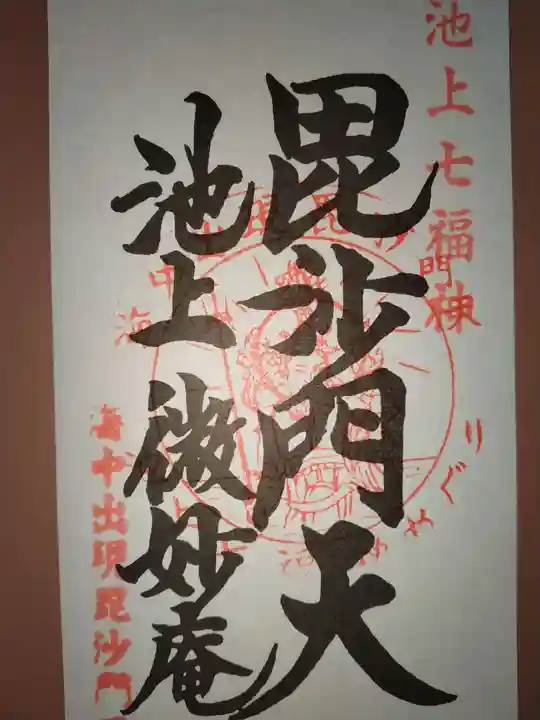 池上七福神
毘沙門天
池上 微妙庵
海中出現毘沙門
めぐり